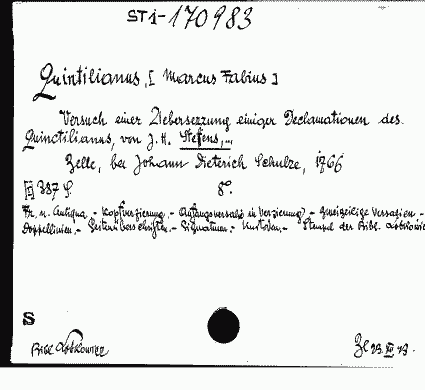 ST1-170983
Quintilianus, [Marcus Fabius]
Versuch einer Uebersezzung einiger Declamationen des
Quinctilianus, von J. H. Stefens,...
Zelle, bei Johann Dieterich Schulze, 1766
387 S. 8°.
Fr. u. Antiqua.- Kopfverzierung.- Anfangsversalie in Verzierung.- Zweizeilige Versalien.-
Doppellinien.- Seitenüberschriften.- Signaturen.- Kustoden.- Stempel der Bibl. Lobkowicz
S
Bibl. Lobkowicz